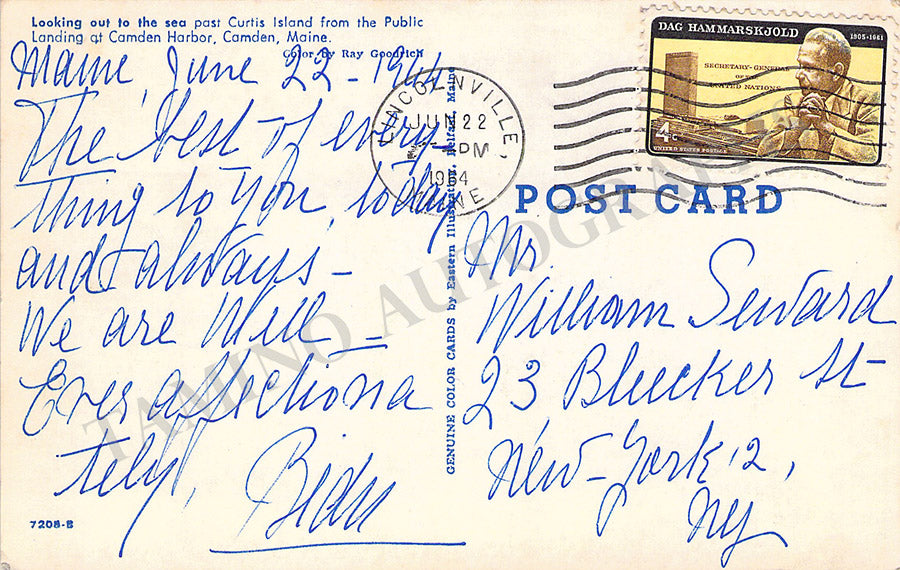 Looking out to the sea past Curtis Island from the Public
Landing at Camden Harbor, Camden, Maine.
Color by Ray Goodrich
Maine, June 22-1964
The best of every-
thing to you, today
and always -
We are Well -
Ever affectiona
tely,
7208-B
GENUINE COLOR CARDS by Eastern Illustrating, Belfast, Maine
LINCOLNVILLE,
JUN 22
PM
1964
MAINE
DAG HAMMARSKJOLD
1905-1961
SECRETARY-GENERAL
OF THE
UNITED NATIONS
4c
UNITED STATES POSTAGE
POST CARD
Mr
William Seward
23 Bleecker St-
New-York 12,
Ny
TAMINO AUTOGRAPHS